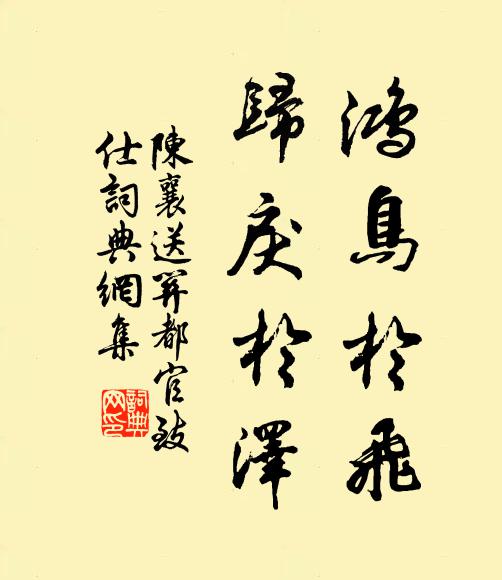 鴻鳥於飛
歸戾於澤
陳襄送羿都官致
仕詞典網集
詞典
网印